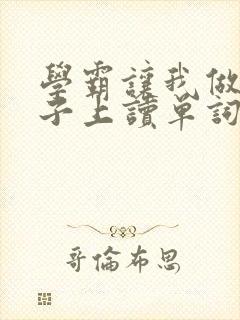 學霸讓我做
子上讀單詞
哥倫布思